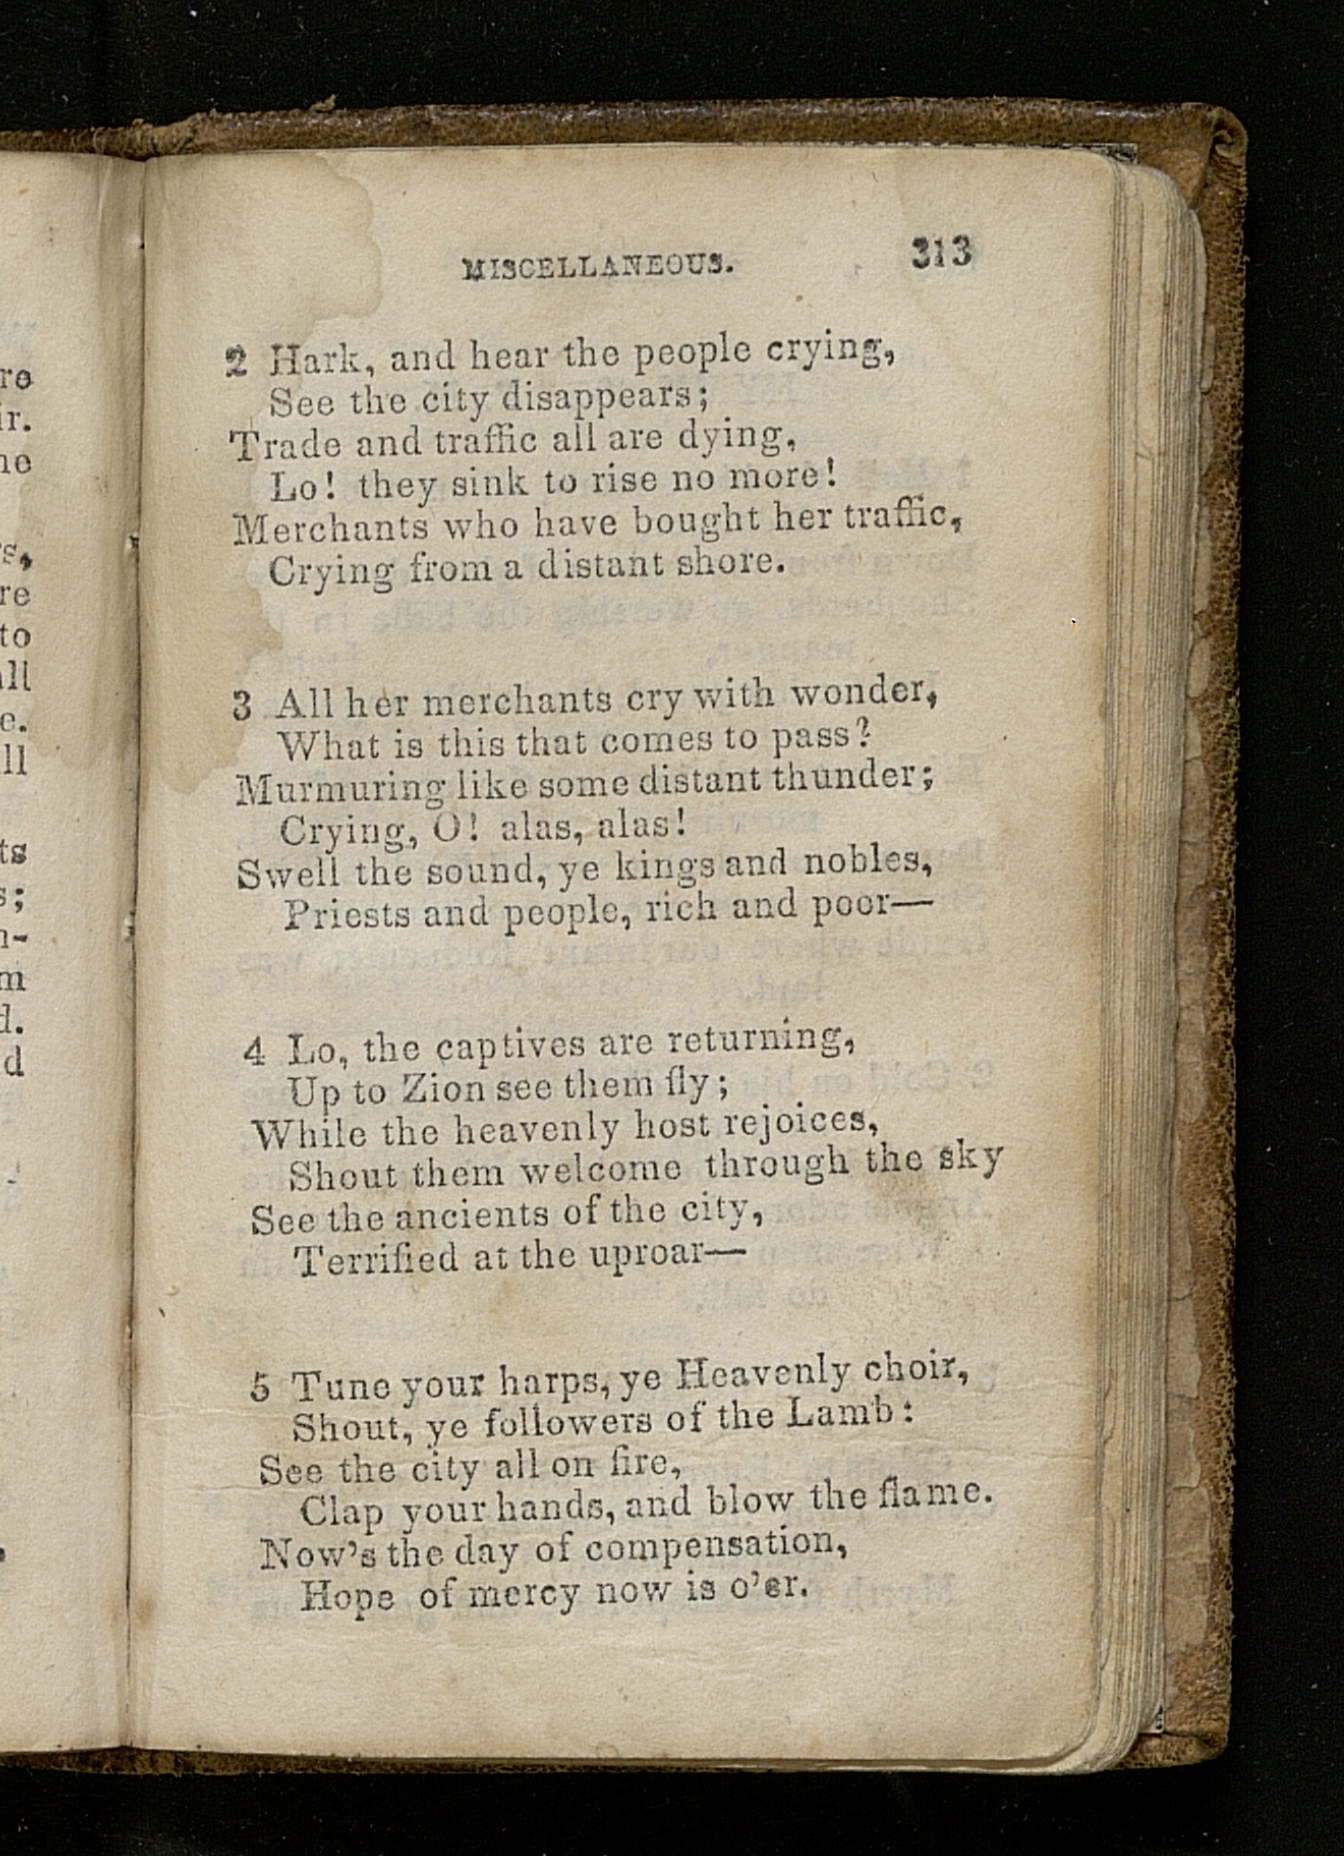 re
ir.
ne
rs,
re
to
all
e.
ll
ts
s;
n-
m
d.
d
MISCELLANEOUS. 313
2 Hark, and hear the people crying,
See the city disappears;
Trade and traffic all are dying,
Lo! they sink to rise no more!
Merchants who have bought her traffic,
Crying from a distant shore.
3 All her merchants cry with wonder,
What is this that comes to pass?
Murmuring like some distant thunder;
Crying, O! alas, alas!
Swell the sound, ye kings and nobles,
Priests and people, rich and poor—
4 Lo, the captives are returning,
Up to Zion see them fly;
While the heavenly host rejoices,
Shout them welcome through the sky
See the ancients of the city,
Terrified at the uproar—
5 Tune your harps, ye Heavenly choir,
Shout, ye followers of the Lamb:
See the city all on fire,
Clap your hands, and blow the flame.
Now's the day of compensation,
Hope of mercy now is o'er.